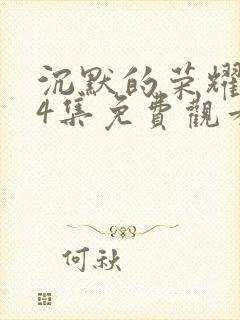 沉默的荣耀
4集免費觀
何秋